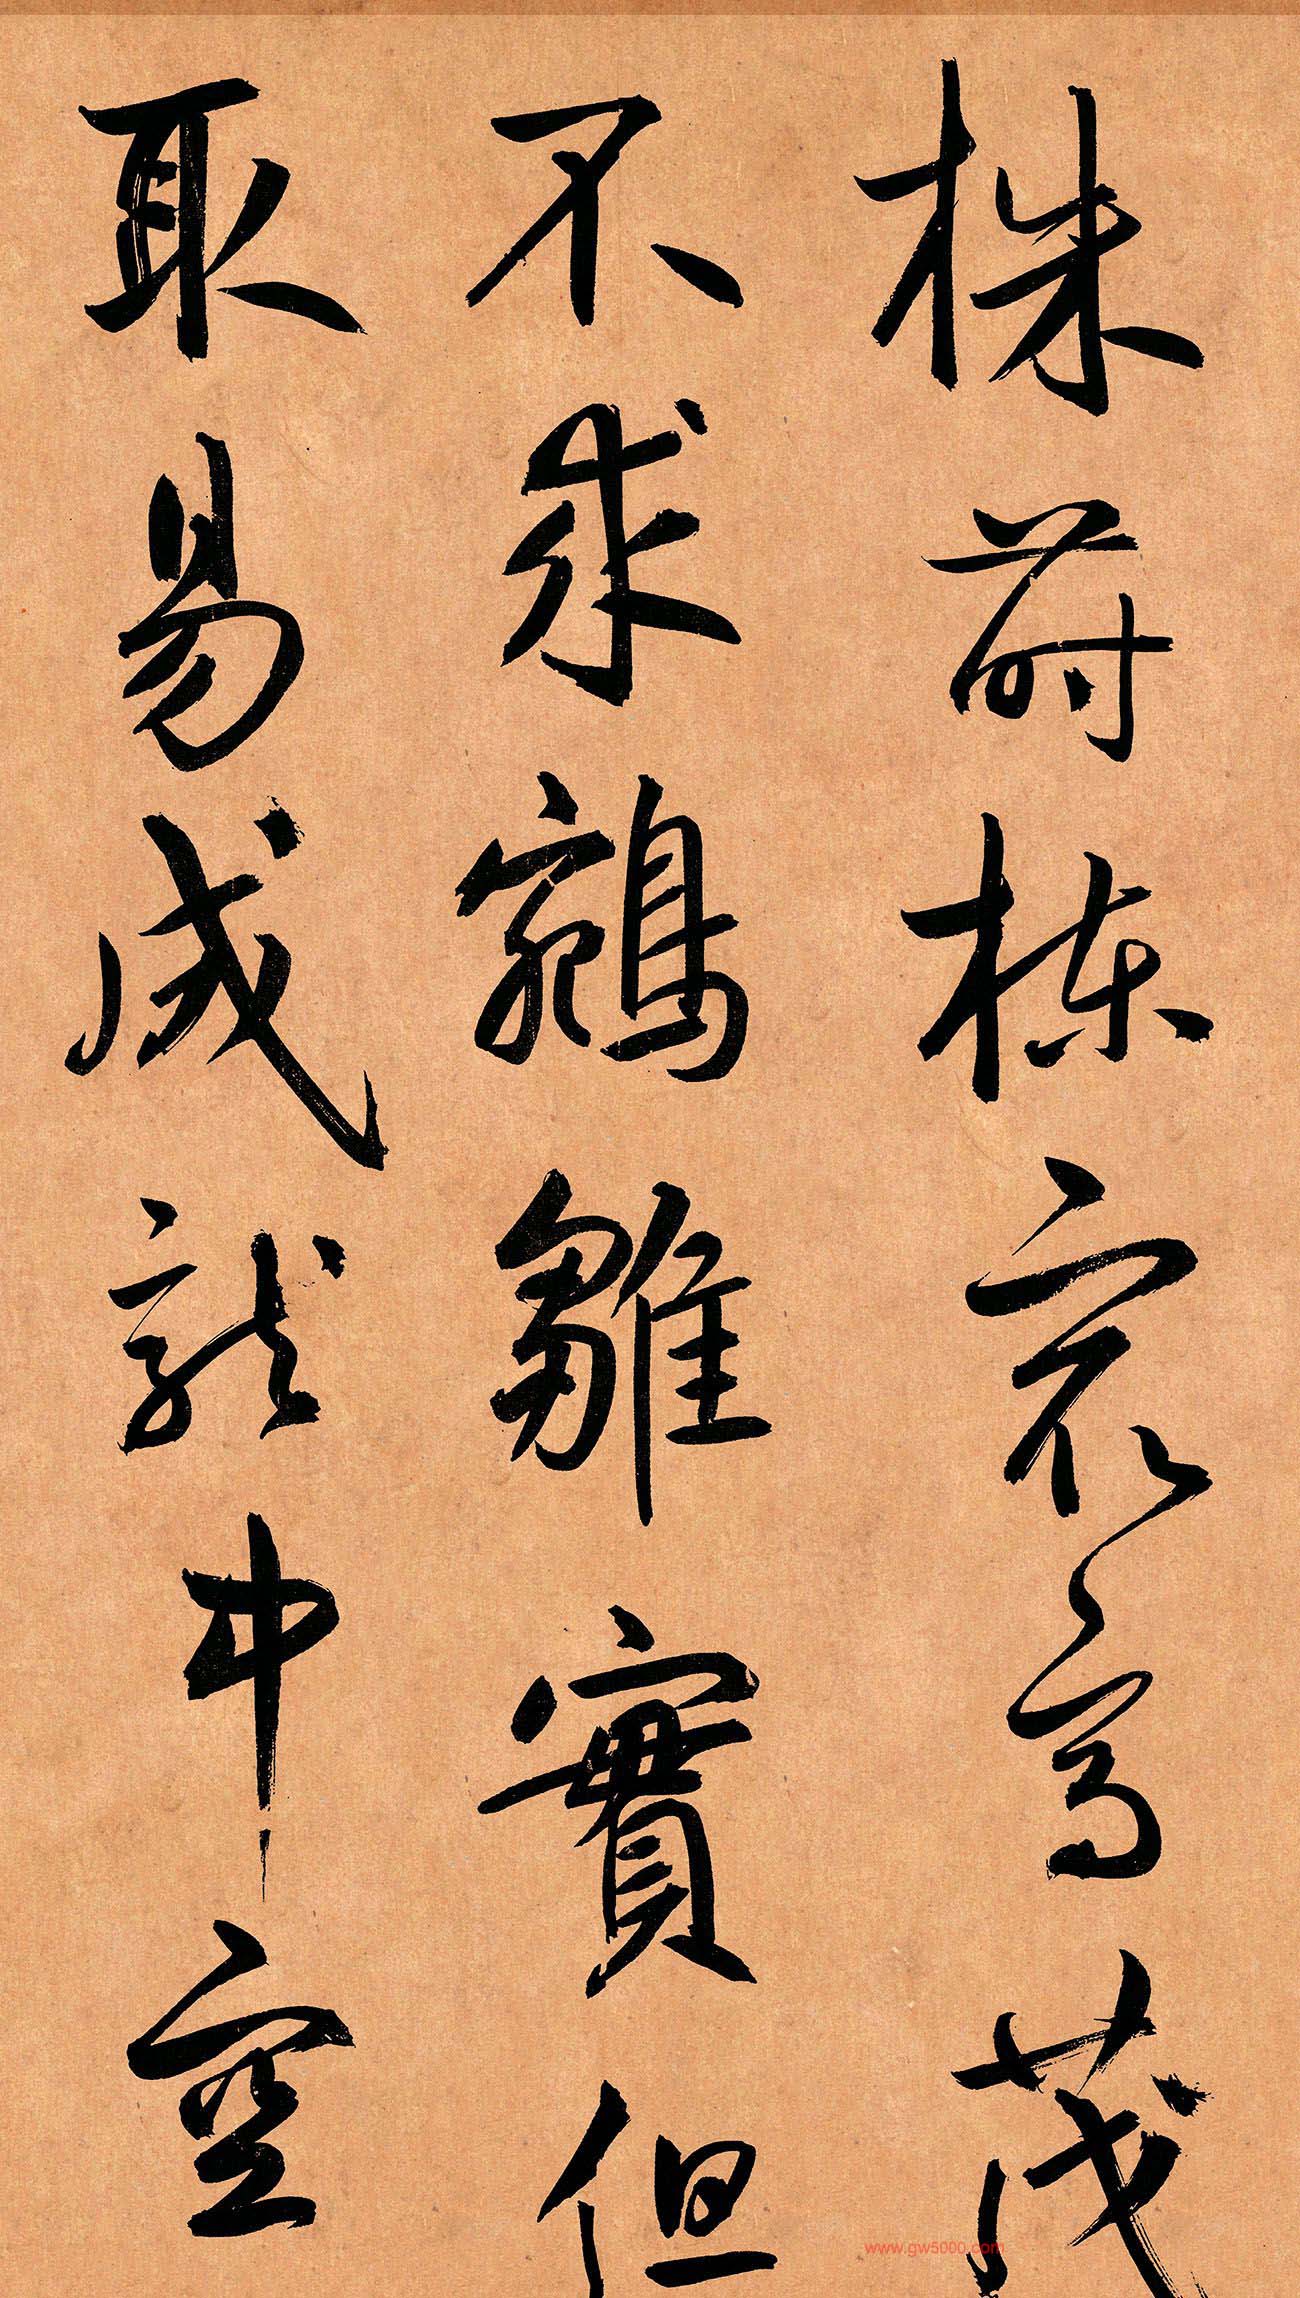 株莳栋最高茂
不求鵷雛實但
取易成就中空
www.gw5000.com